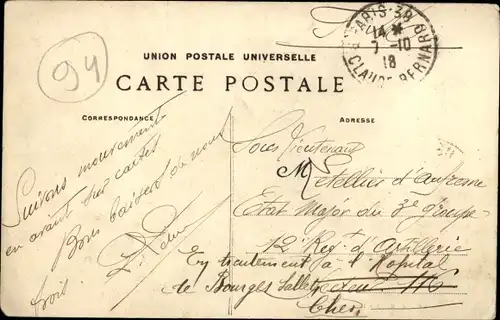 94
PARIS-38
14 *
7-10
18
R. CLAUDE BERNARD
UNION POSTALE UNIVERSELLE
CARTE POSTALE
CORRESPONDANCE
ADRESSE
Suivons mouvement
en avant sur cartes
Bons baisers de nous
trois.
Sous Lieutenant
M Letellier d'Aufresne
Etat Major du 3e groupe
12 Reg. d'Artillerie
En traitement à l'Hôpital
de Bourges Salle
Secteur 116
Cher